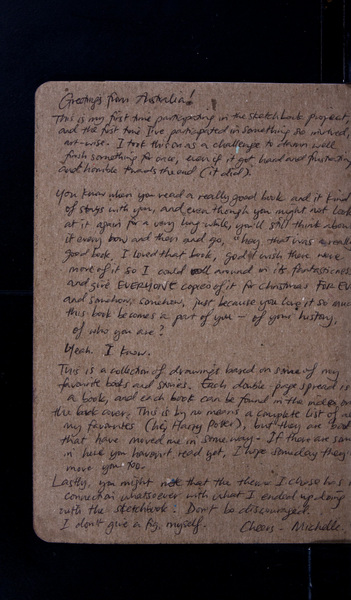 Greetings from Australia!
This is my first time participating in the sketchbook project,
and the first time I've participated in something so involved,
art-wise. I took this on as a challenge to damn well
finish something for once, even if it got hard and frustrating
and horrible towards the end (it did).
You know when you read a really good book and it kind
of stays with you, and even though you might not look
at it again for a very long while, you'll still think about
it every now and then and go, "hey, that was a really
good book, I loved that book, god I wish there were
more of it so I could roll around in its fantasticness
and give EVERYONE copies of it for christmas FOR EV
and somehow, somehow, just because you love it so much
this book becomes a part of you - of your history,
of who you are?
Yeah. I know.
This is a collection of drawings based on some of my
favourite books and stories. Each double-page spread is
a book, and each book can be found in the index on
the back cover. This is by no means a complete list of all
my favourites (hey, Harry Potter), but they are books
that have moved me in some way. If there are some
in here you haven't read yet, I hope someday they
move you too.
Lastly, you might note that the theme I chose has no
connection whatsoever with what I ended up doing
with the sketchbook. Don't be discouraged.
I don't give a fig, myself. Cheers - Michelle.